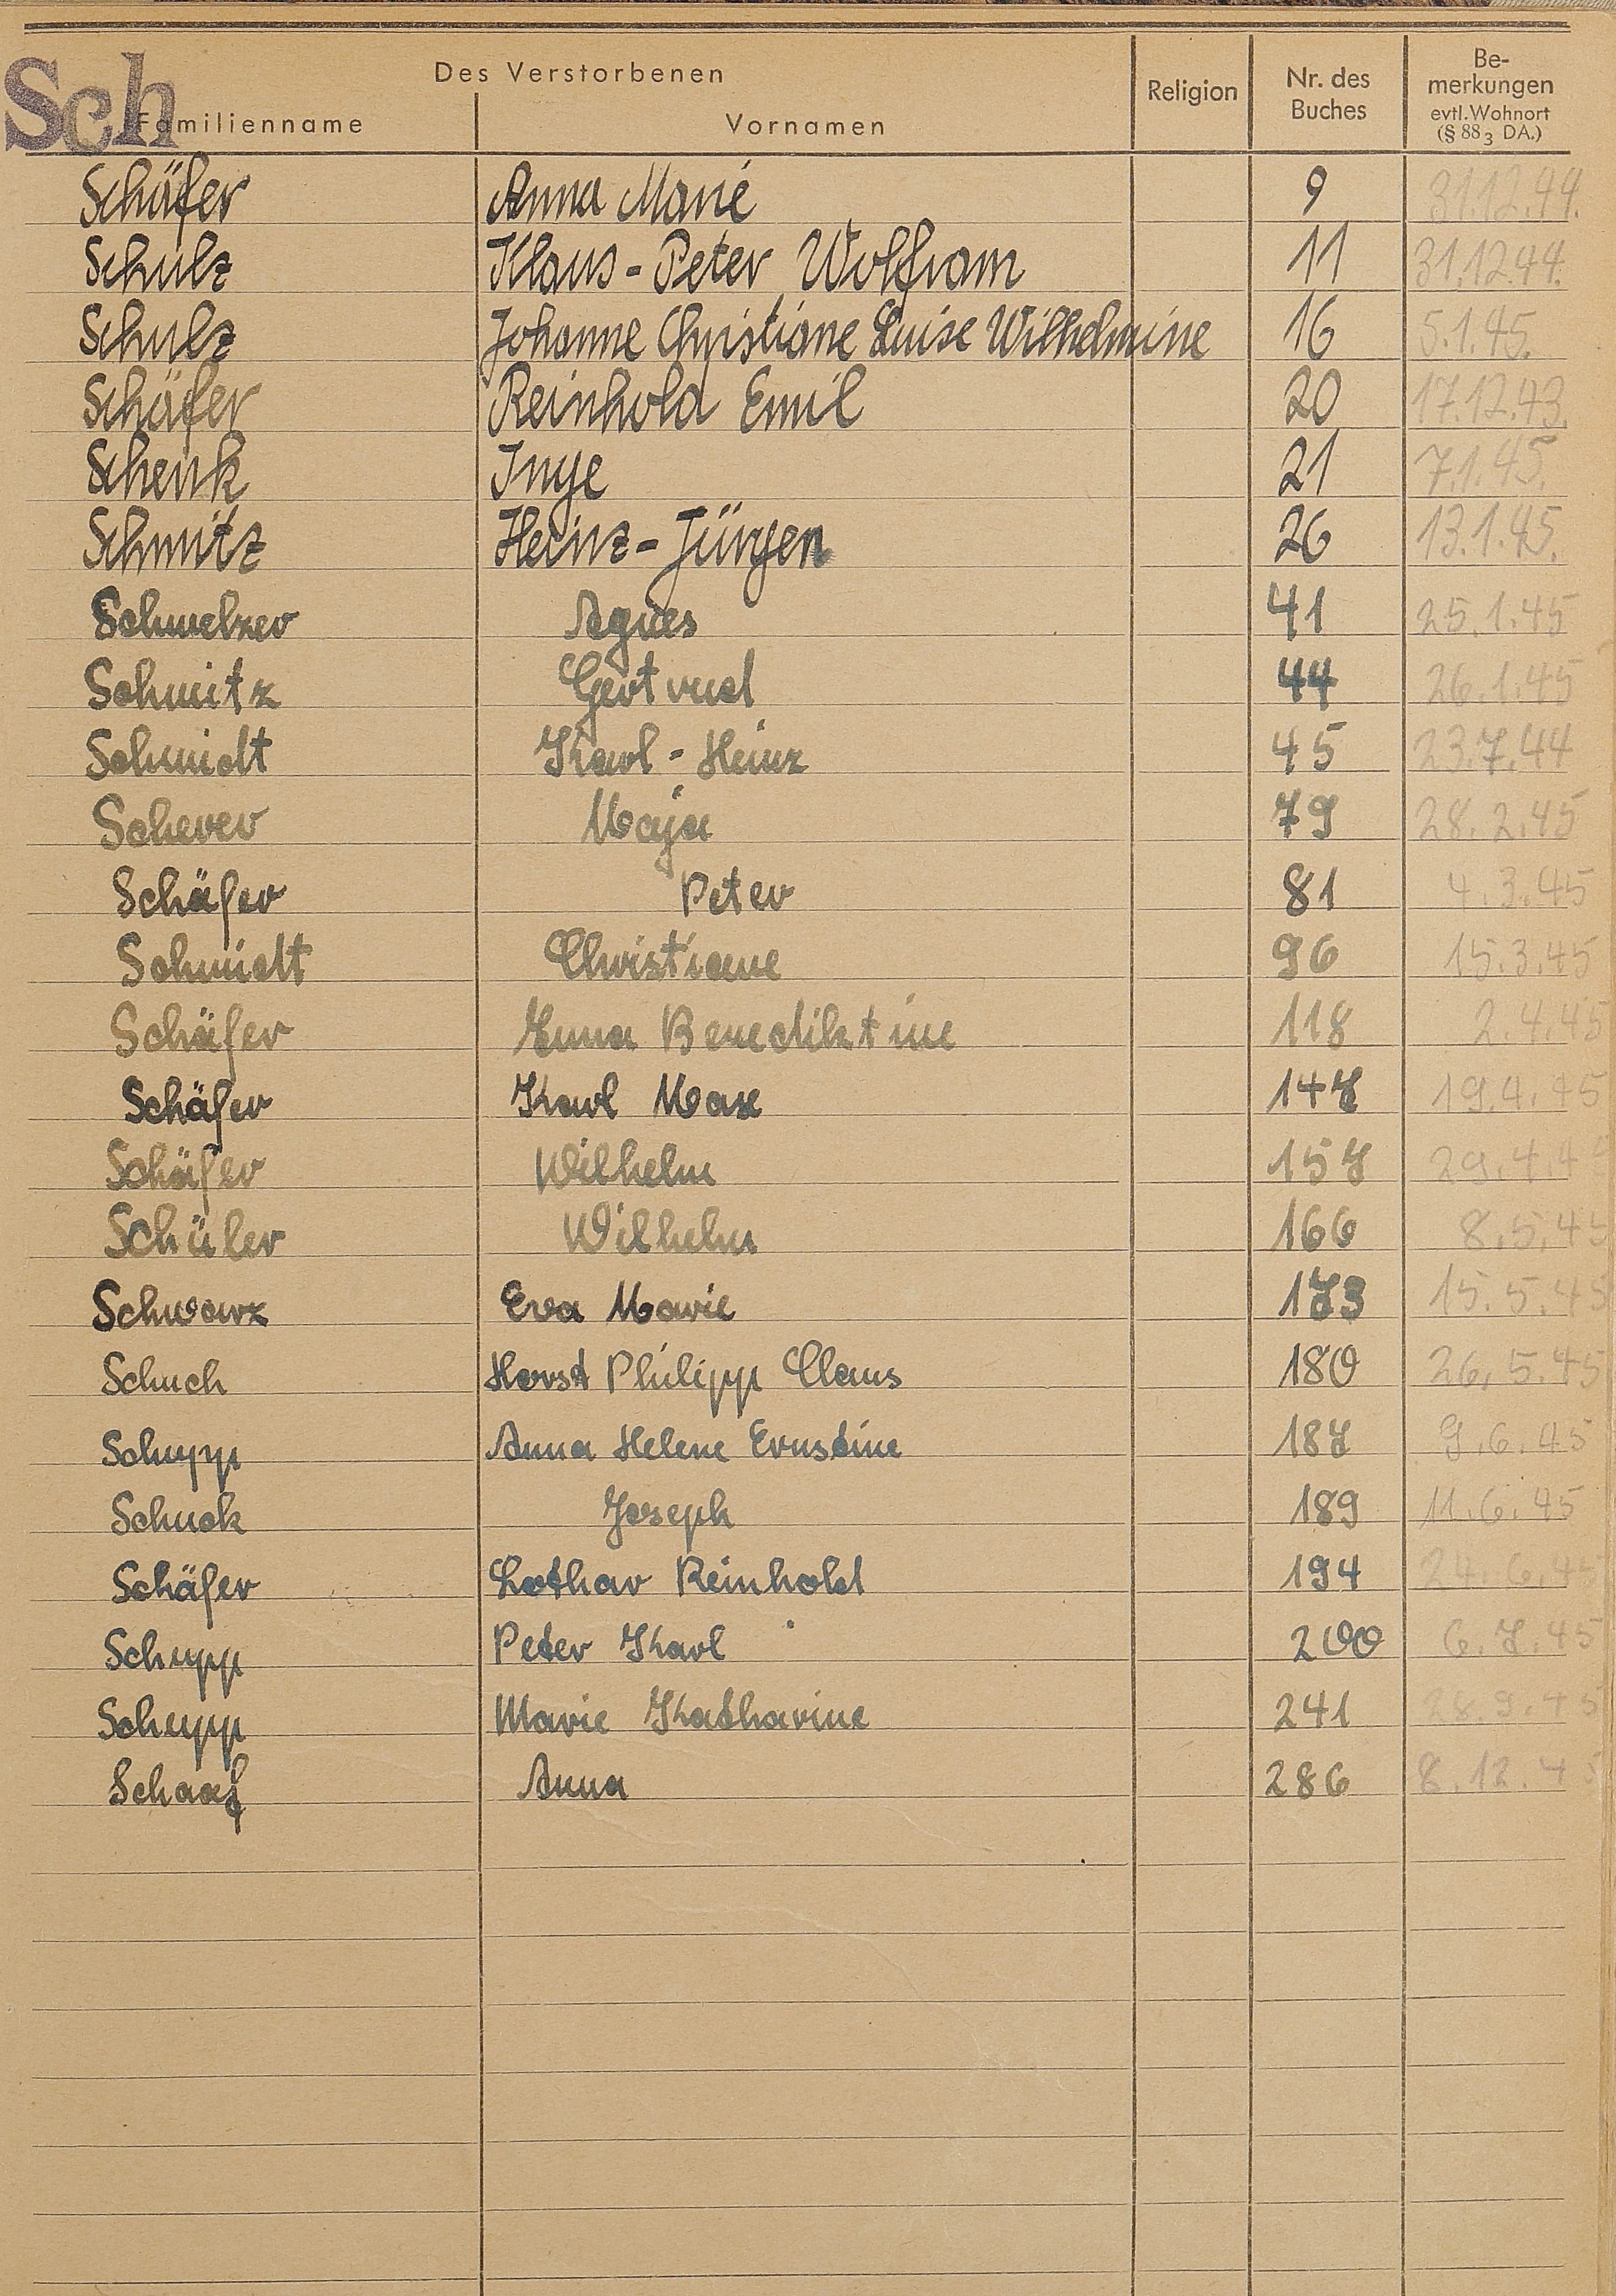 Sch
Des Verstorbenen
Familienname Vornamen Religion Nr. des Buches Be-merkungen evtl. Wohnort (§ 88 3 DA.)
Schäfer Anna Marie 9 31.12.44.
Schulz Klaus-Peter Wolfram 11 31.12.44.
Schulz Johanne Christiane Luise Wilhelmine 16 5.1.45.
Schäfer Reinhold Emil 20 17.12.43.
Schenk Inge 21 7.1.45.
Schmitz Heinz-Jürgen 26 13.1.45.
Schmelzer Agnes 41 25.1.45
Schmitz Gertrud 44 26.1.45
Schmidt Karl-Heinz 45 23.7.44
Scherer Maja 79 28.2.45
Schäfer Peter 81 4.3.45
Schmidt Christiane 96 15.3.45
Schäfer Benediktine 118 2.4.45
Schäfer Karl Max 147 19.4.45
Schäfer Wilhelm 157 29.4.4
Schüler Wilhelm 166 8.5.45
Schwarz Eva Marie 173 15.5.45
Schuch Horst Philipp Claus 180 26.5.45
Schupp Anna Helene Ernstine 187 9.6.45
Schuck Joseph 189 11.6.45
Schäfer Lothar Reinhold 194 24.6.45
Schupp Peter Karl 200 6.7.45
Schupp Marie Katharine 241 28.9.45
Schaaf Anna 286 8.12.45